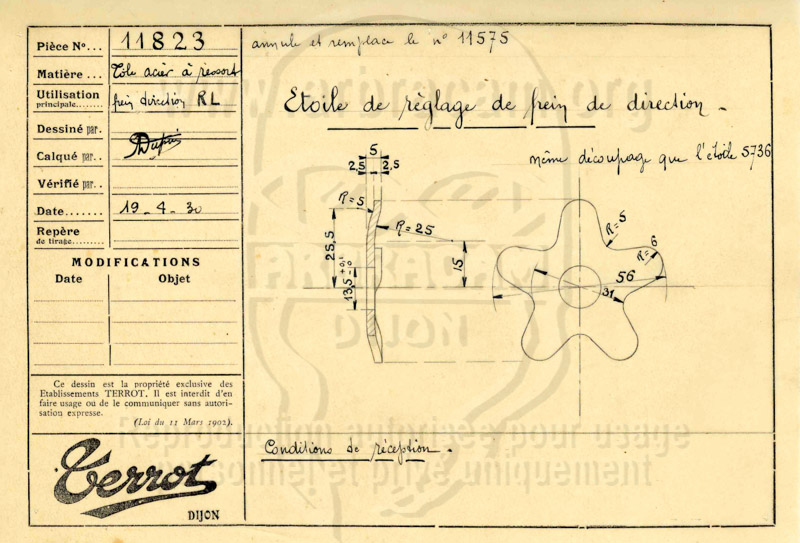 Pièce No... 11823
Matière ... Tôle acier à ressort
Utilisation
principale........ frein direction RL
Dessiné par.
Calqué par.. Dupuis
Vérifié par..
Date....... 19-4-30
Repère
de tirage.........
MODIFICATIONS
Date Objet
Ce dessin est la propriété exclusive des
Etablissements TERROT. Il est interdit d'en
faire usage ou de le communiquer sans autori-
sation expresse.
(Loi du 11 Mars 1902).
Terrot
DIJON
annule et remplace le n° 11575
Etoile de règlage de frein de direction -
même découpage que l'étoile 5736
5
2,5 2,5
R=5
R=25
25,5
15
13,5 +0,1 -0
R=5
R=6
56
31
Conditions de réception -
www.arbracam.org
ARBRACAM
DIJON
Reproduction autorisée pour usage
personnel et privé uniquement